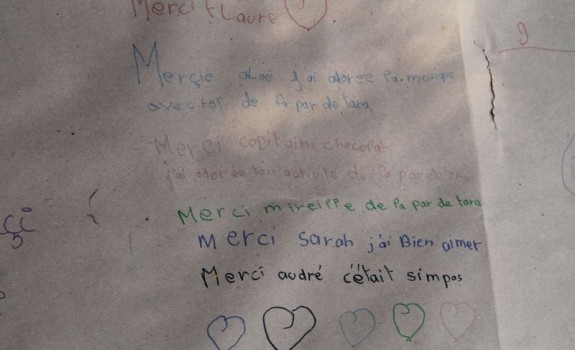 Merci flaure
9
Merçie aloé j'ai adorée la musique
avec toi de la par de tara
Merci capitaine chocolat
j'ai adorée ton activité de la par de tara
Merci mireille de la par de tara
çi
Merci sarah j'ai Bien aimer
Merci audré c'était simpas